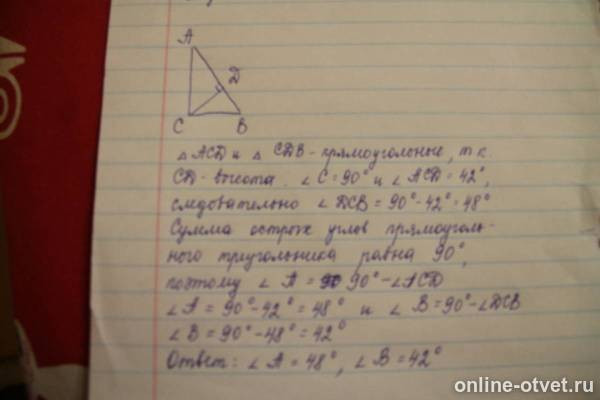 A
D
C B
△ ACD и △ CDB - прямоугольные, т.к.
CD - высота. ∠C = 90° и ∠ACD = 42°,
следовательно ∠DCB = 90° - 42° = 48°
Сумма острых углов прямоуголь-
ного треугольника равна 90°,
поэтому ∠A = 90° - ∠ACD
∠A = 90° - 42° = 48° и ∠B = 90° - ∠DCB
∠B = 90° - 48° = 42°
Ответ: ∠A = 48°, ∠B = 42°
online-otvet.ru